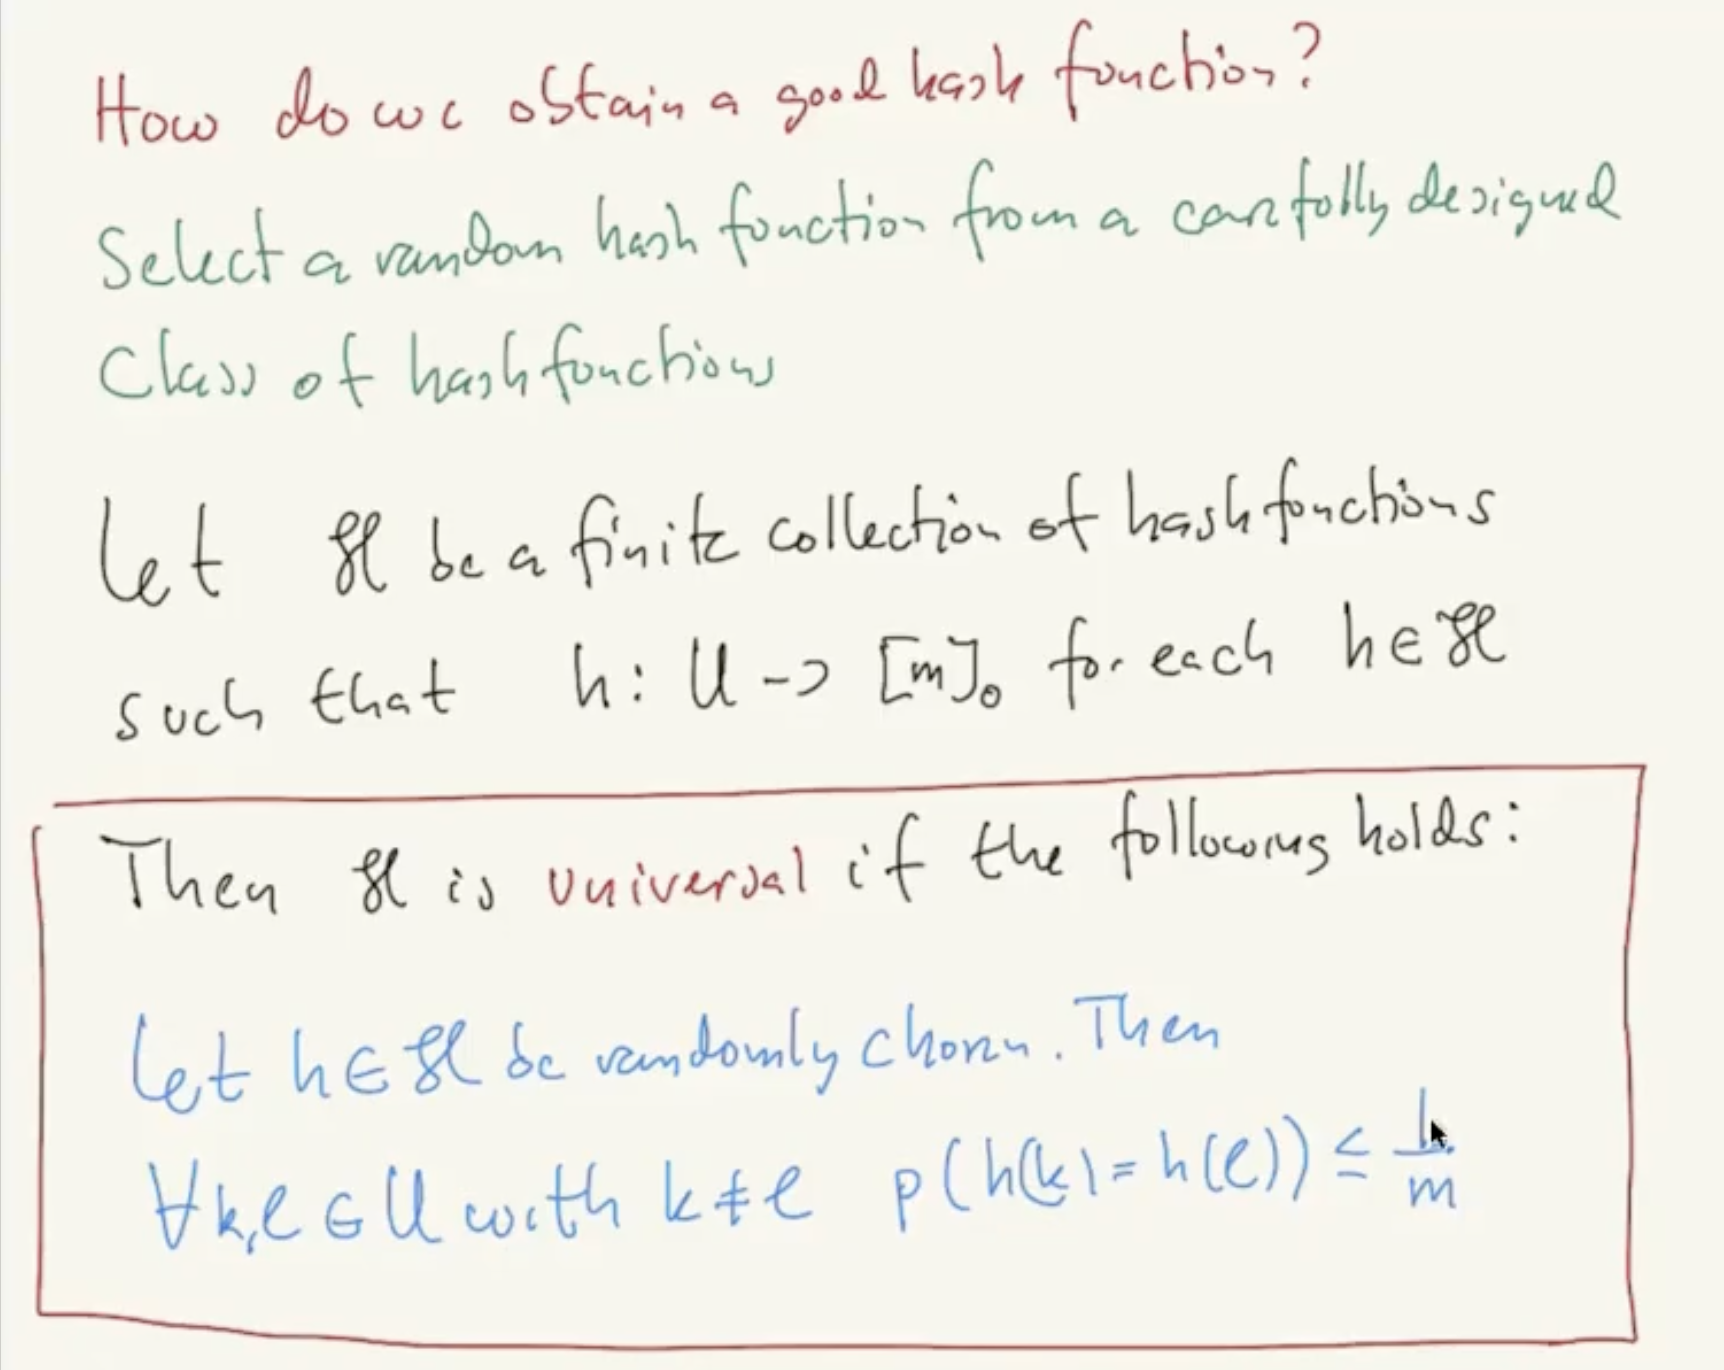 How do we obtain a good hash function?
Select a random hash function from a carefully designed
Class of hashfunctions
Let ℋ be a finite collection of hashfunctions
such that h: U -> [m]₀ for each h∈ℋ
Then ℋ is universal if the following holds:
Let h∈ℋ be randomly chosen. Then
∀k,ℓ∈U with k≠ℓ p(h(k)=h(ℓ)) ≤ 1/m